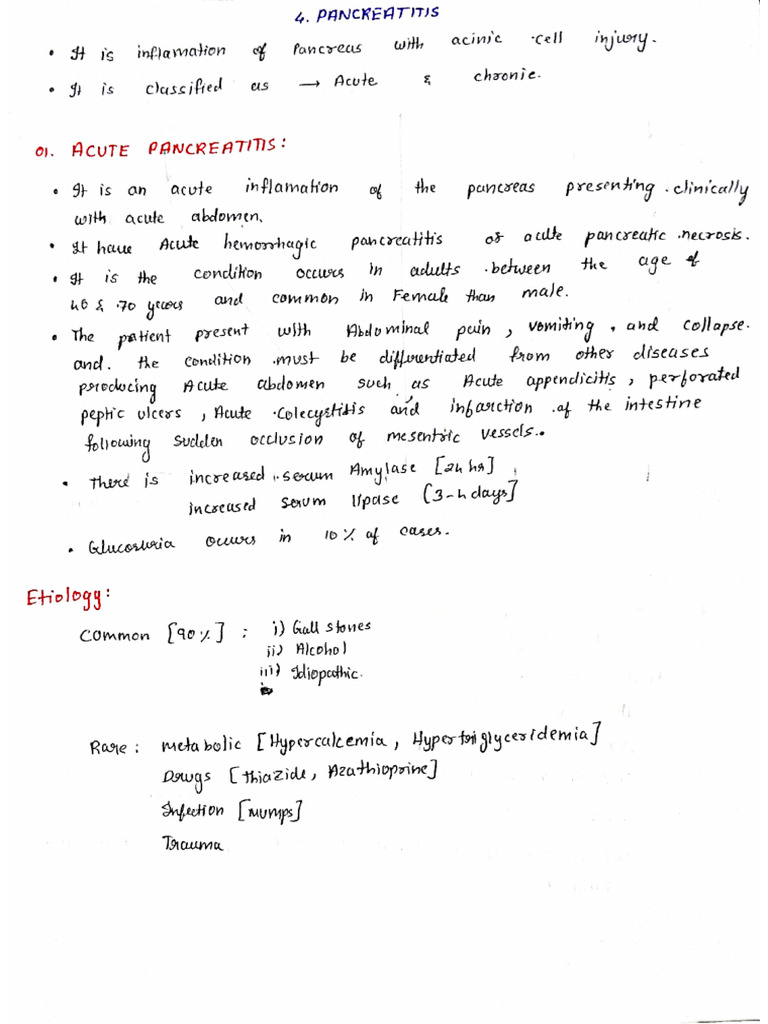 4. PANCREATITIS
• It is inflamation of Pancreas with acinic cell injury.
• It is classified as → Acute & chronic.
01. ACUTE PANCREATITIS:
• It is an acute inflamation of the pancreas presenting clinically
with acute abdomen.
• It have Acute hemorrhagic pancreatitis or acute pancreatic necrosis.
• It is the condition occurs in adults between the age of
40 & 70 years and common in Female than male.
• The patient present with Abdominal pain, vomiting, and collapse.
and. the condition must be differentiated from other diseases
producing Acute abdomen such as Acute appendicitis, perforated
peptic ulcers, Acute Colecystitis and infarction of the intestine
following sudden occlusion of mesentric vessels.
• There is increased serum Amylase [24 hr]
increased serum lipase [3-4 days]
• Glucosuria occurs in 10% of cases.
Etiology:
Common [90%] : i) Gall stones
ii) Alcohol
iii) Idiopathic.
Rare: Metabolic [Hypercalcemia, Hypertriglyceridemia]
Drugs [Thiazide, Azathioprine]
Infection [Mumps]
Trauma